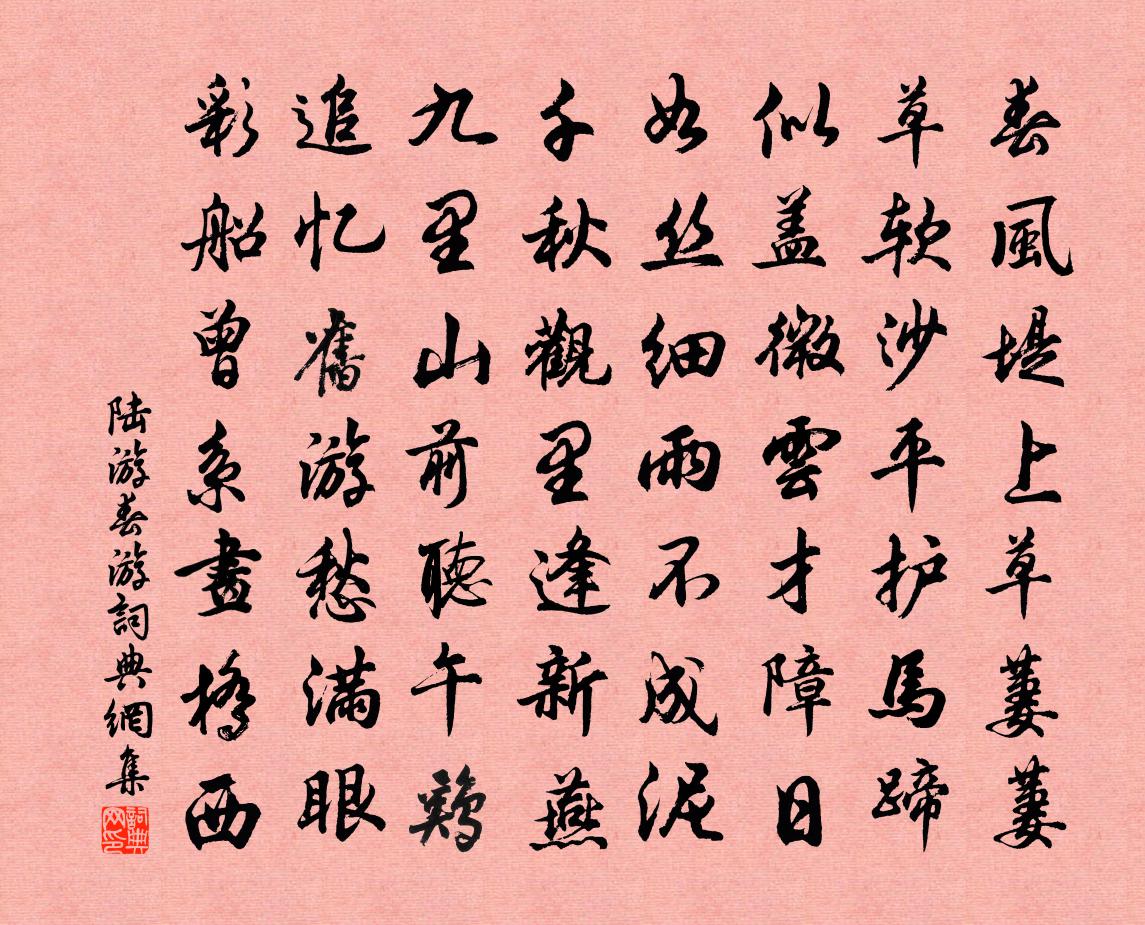 春風堤上草萋萋
草软沙平护馬蹄
似盖微雲才障日
如丝细雨不成泥
千秋觀里逢新燕
九里山前聽午鷄
追忆舊游愁滿眼
彩船曾系畫橋西
陆游春游詞典網集
詞典网印